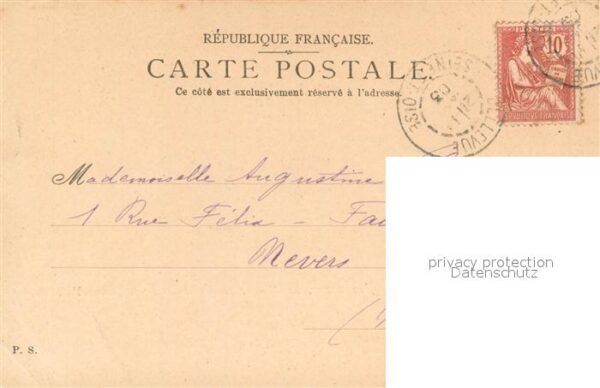 RÉPUBLIQUE FRANÇAISE.
CARTE POSTALE.
Ce côté est exclusivement réservé à l'adresse.
10
RÉPUBLIQUE FRANÇAISE
BELLEVUE
SEINE ET OISE
03
Mademoiselle Augustine
1 Rue Félix - Fau
Nevers
privacy protection
Datenschutz
P. S.